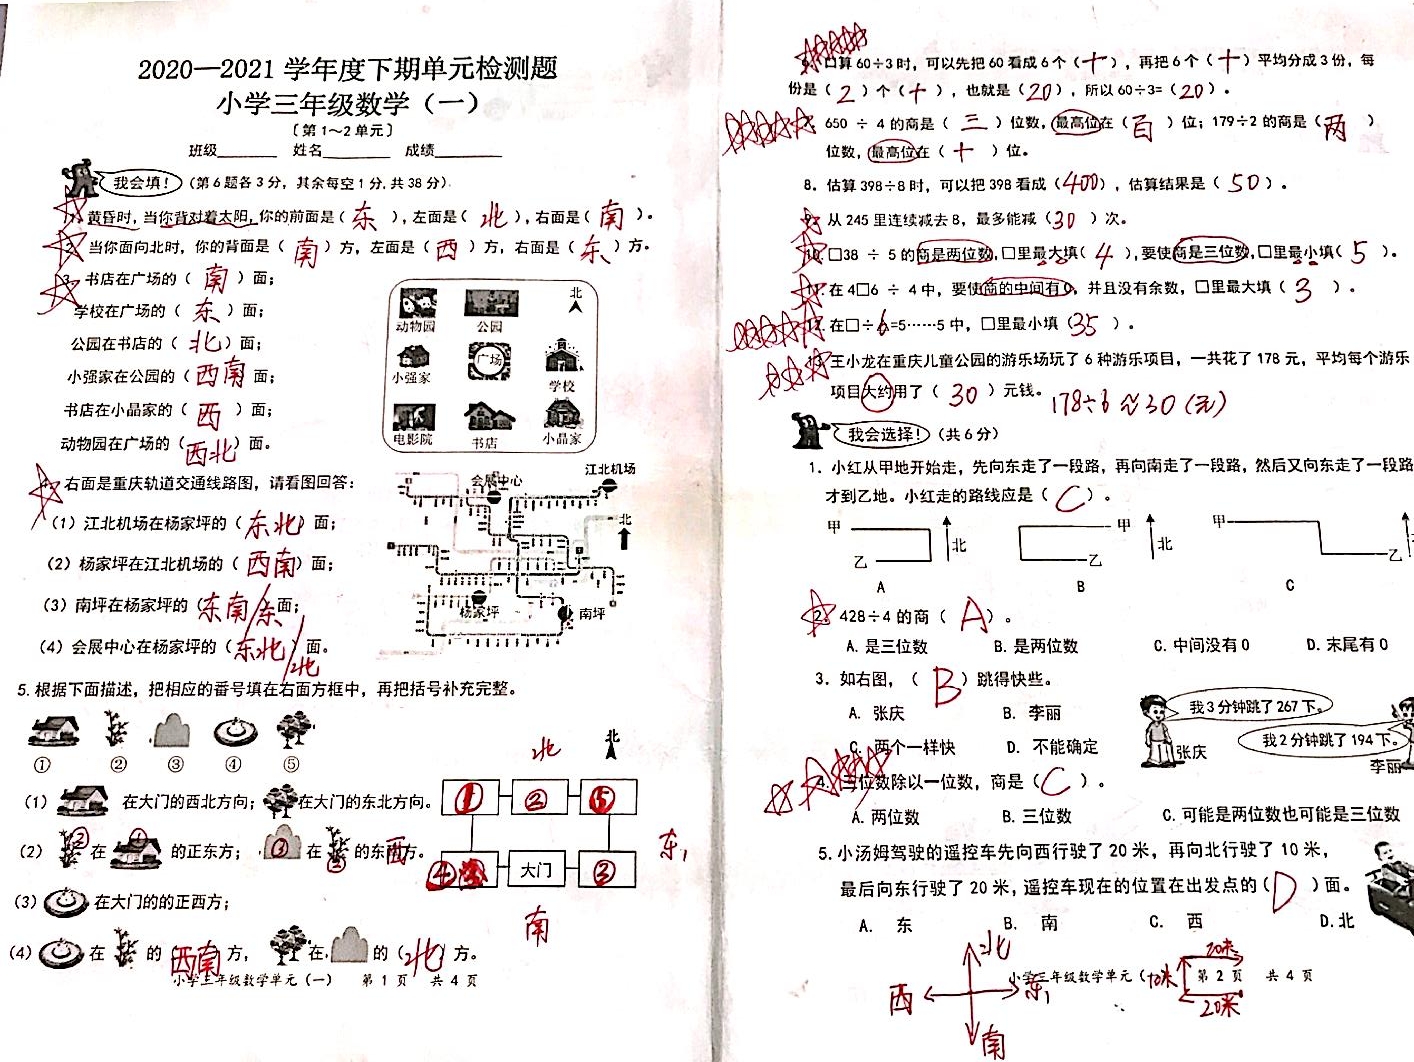 2020—2021 学年度下期单元检测题
小学三年级数学（一）
〔第1～2单元〕
班级 姓名 成绩
我会填！（第6题各3分，其余每空1分，共38分）
1. 黄昏时，当你背对着太阳，你的前面是（东），左面是（北），右面是（南）。
2. 当你面向北时，你的背面是（南）方，左面是（西）方，右面是（东）方。
3. 书店在广场的（南）面；
学校在广场的（东）面；
公园在书店的（北）面；
小强家在公园的（西南）面；
书店在小晶家的（西）面；
动物园在广场的（西北）面。
动物园 公园 北
小强家 广场 学校
电影院 书店 小晶家
4. 右面是重庆轨道交通线路图，请看图回答：
（1）江北机场在杨家坪的（东北）面；
（2）杨家坪在江北机场的（西南）面；
（3）南坪在杨家坪的（东南/东）面；
（4）会展中心在杨家坪的（东北/北）面。
江北机场
会展中心
北
杨家坪 南坪
5. 根据下面描述，把相应的番号填在右面方框中，再把括号补充完整。
① ② ③ ④ ⑤
北 北
（1） 在大门的西北方向； 在大门的东北方向。
① ② ⑤
（2） ② 在 ① 的正东方； ③ 在 的东西方。
④ 大门 ③
东
（3） 在大门的的正西方；
南
（4） 在 的（西南）方， 在 的（北）方。
小学三年级数学单元（一） 第 1 页 共 4 页
6. 口算 60÷3 时，可以先把 60 看成 6 个（十），再把 6 个（十）平均分成 3 份，每
份是（2）个（十），也就是（20），所以 60÷3=（20）。
7. 650 ÷ 4 的商是（三）位数，最高位在（百）位；179÷2 的商是（两）
位数，最高位在（十）位。
8. 估算 398÷8 时，可以把 398 看成（400），估算结果是（50）。
9. 从 245 里连续减去 8，最多能减（30）次。
10. □38 ÷ 5 的商是两位数，□里最大填（4），要使商是三位数，□里最小填（5）。
11. 在 4□6 ÷ 4 中，要使商的中间有0，并且没有余数，□里最大填（3）。
12. 在□÷6=5……5 中，□里最小填（35）。
13. 王小龙在重庆儿童公园的游乐场玩了 6 种游乐项目，一共花了 178 元，平均每个游乐
项目大约用了（30）元钱。 178÷6≈30（元）
我会选择！（共6分）
1. 小红从甲地开始走，先向东走了一段路，再向南走了一段路，然后又向东走了一段路
才到乙地。小红走的路线应是（C）。
甲 甲 甲
北 北
乙 乙 乙
A B C
2. 428÷4 的商（A）。
A. 是三位数 B. 是两位数 C. 中间没有0 D. 末尾有0
3. 如右图，（B）跳得快些。
A. 张庆 B. 李丽
C. 两个一样快 D. 不能确定
我3分钟跳了267下。
我2分钟跳了194下。
张庆
李丽
4. 三位数除以一位数，商是（C）。
A. 两位数 B. 三位数 C. 可能是两位数也可能是三位数
5. 小汤姆驾驶的遥控车先向西行驶了 20 米，再向北行驶了 10 米，
最后向东行驶了 20 米，遥控车现在的位置在出发点的（D）面。
A. 东 B. 南 C. 西 D. 北
北 20米
小学三年级数学单元（ 10米 第 2 页 共 4 页
西 东 20米
南